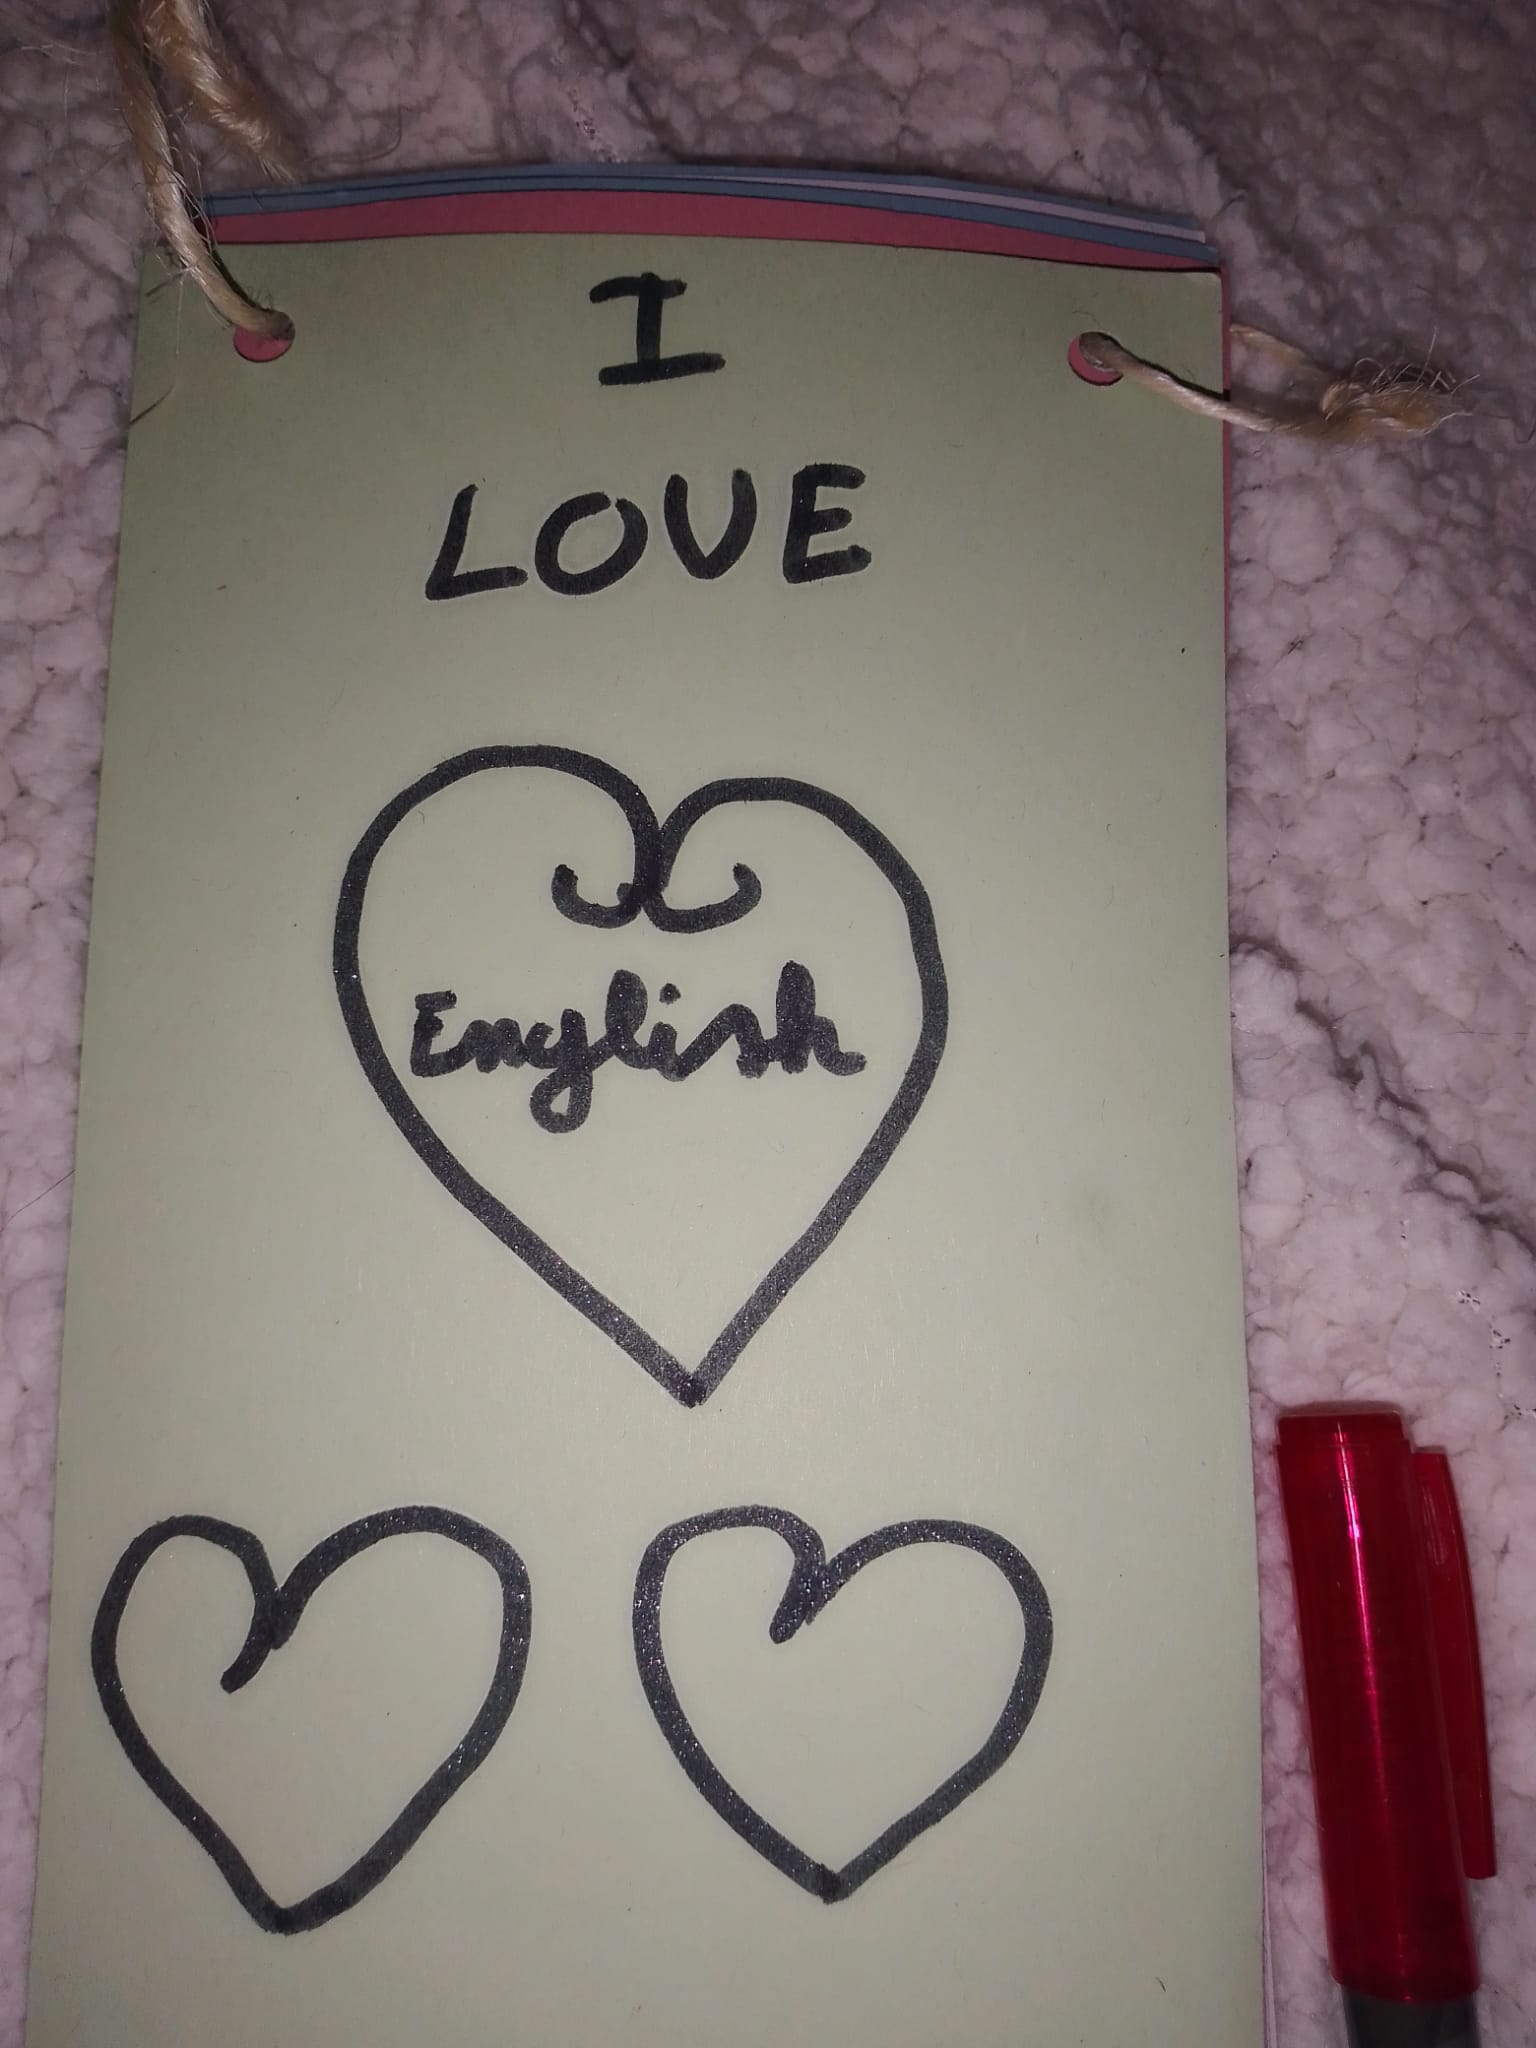 I
LOVE
English